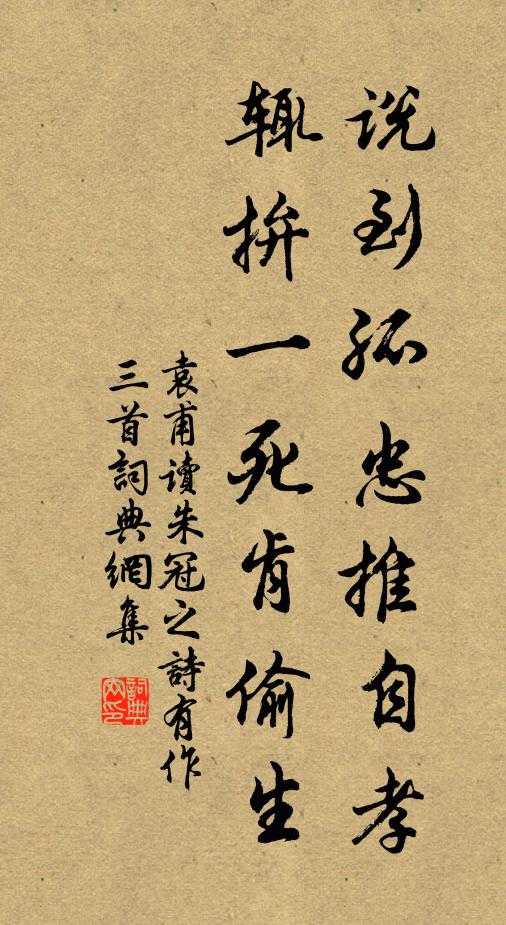 説到孤忠推自孝
輙拚一死肯偷生
袁甫讀朱冠之詩有作
三首詞典網集
詞典
网印